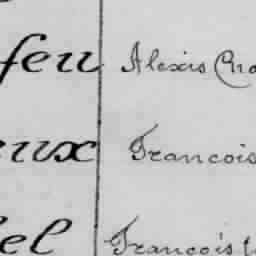 feu Alexis Cho
eux Francois
el Francois